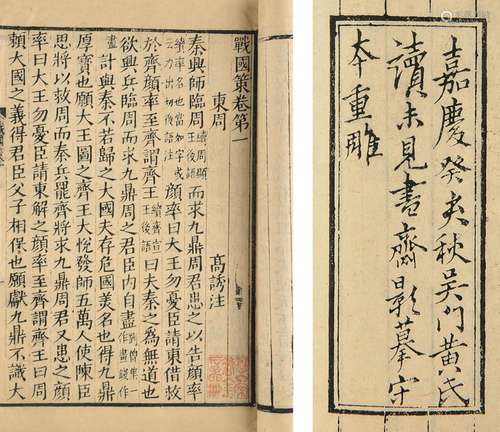 嘉慶癸亥秋吳門黃氏
讀未見書齋影摹宋
本重雕
戰國策卷第一
東周 高誘注
秦興師臨周續周顯王後語而求九鼎周君患之以告顏
率續率名也當如字或云力出切後語注顏率曰大王勿憂臣請東借救
於齊顏率至齊謂齊王續齊宣王後語曰夫秦之爲無道也
欲興兵臨周而求九鼎周之君臣內自盡集一作畫錢作
計與秦不若歸之大國夫存危國美名也得九鼎
厚寶也願大王圖之齊王大悅發師五萬人使陳臣
思將以救周而秦兵罷齊將求九鼎周君又患之顏
率曰大王勿憂臣請東解之顏率至齊謂齊王曰周
賴大國之義得君臣父子相保也願獻九鼎不識大